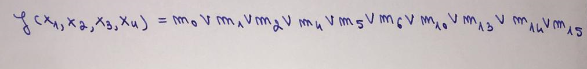 f(x₁,x₂,x₃,x₄) = m₀ ∨ m₁ ∨ m₂ ∨ m₄ ∨ m₅ ∨ m₆ ∨ m₁₀ ∨ m₁₃ ∨ m₁₄ ∨ m₁₅